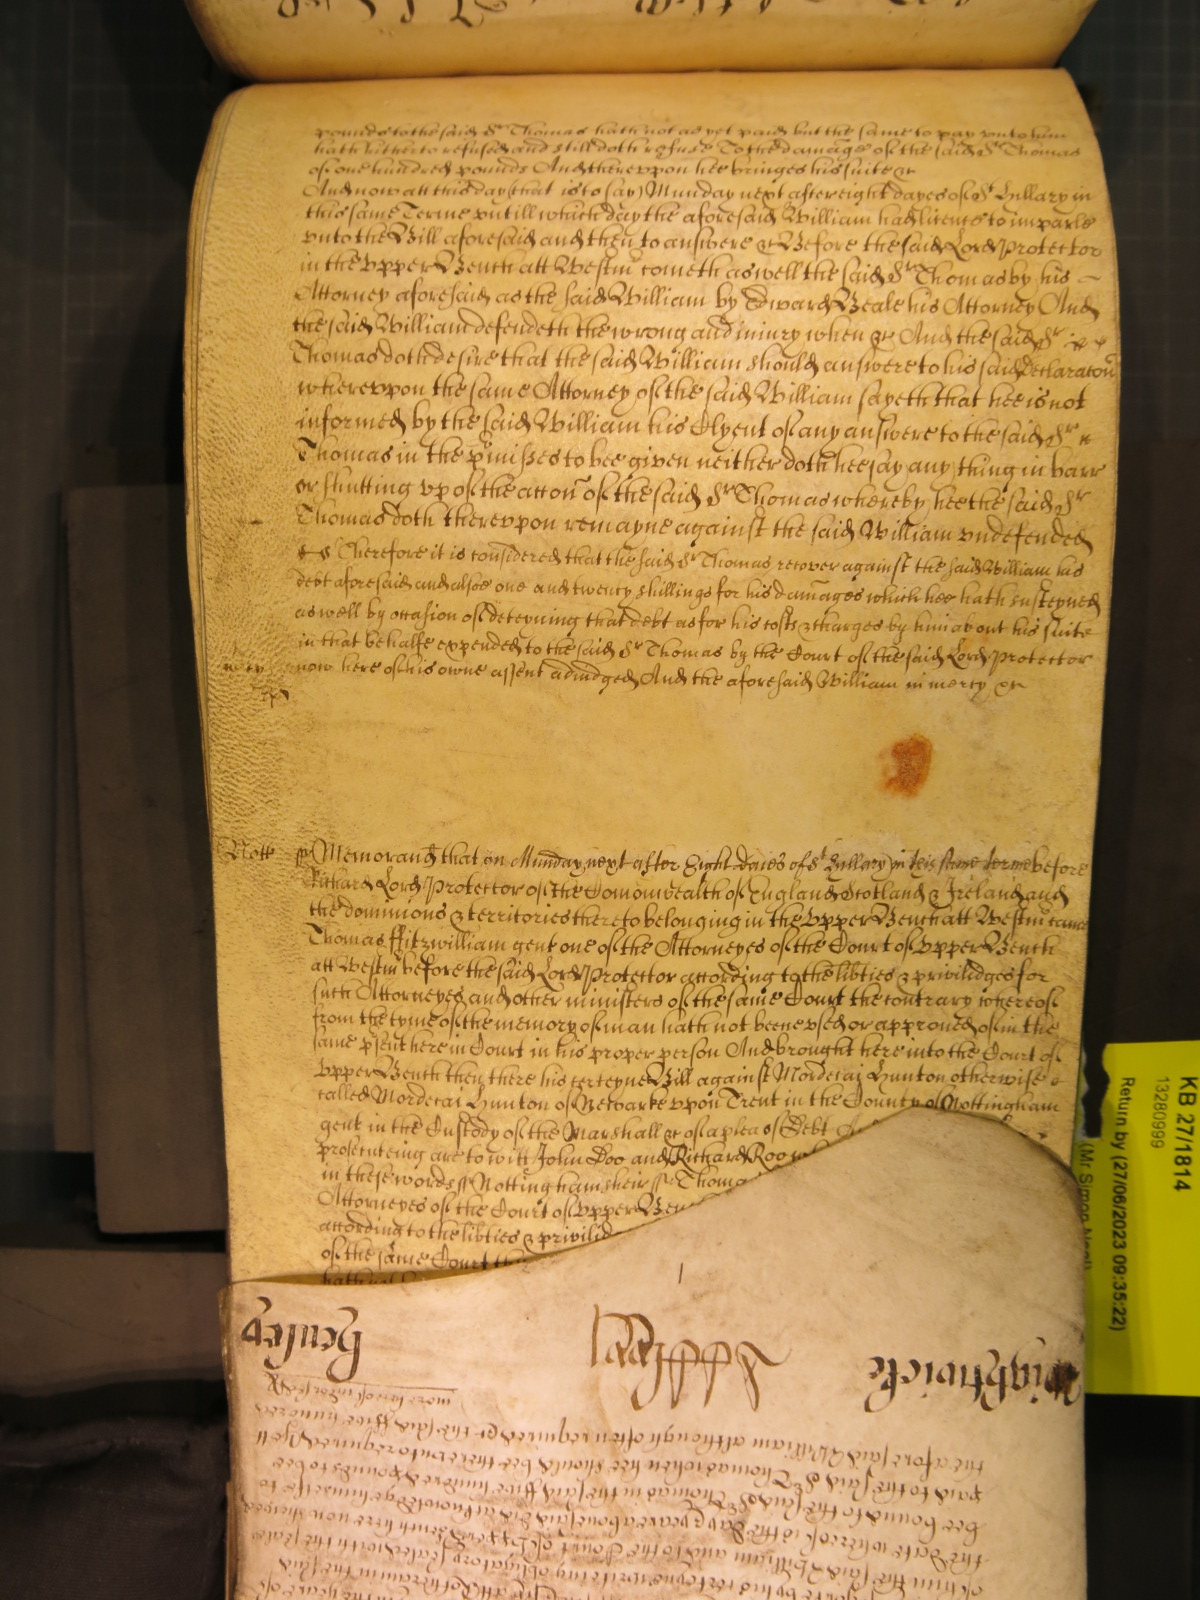 pounds to the said Sr Thomas hath not as yet paid but the same to pay unto him
hath hitherto refused and still doth refuse To the damage of the said Sr Thomas
of one hundred pounds And thereupon hee bringes his suite &c
And now att this day (that is to say) Munday next after eight dayes of St Hillary in
this same Terme untill which day the aforesaid William had licence to imparle
unto the Bill aforesaid and then to answere &c Before the said Lord Protector
in the Upper Bench att Westm cometh aswell the said Sr Thomas by his
Attorney aforesaid as the said William by Edward Beale his Attorney And
the said William defendeth the wrong and iniury when &c And the said Sr
Thomas doth desire that the said William should answere to his said declaracon
whereupon the same Attorney of the said William sayeth that hee is not
informed by the said William his Clyent of any answere to the said Sr
Thomas in the pmisses to bee given neither doth hee say any thing in barr
or shutting up of the accon of the said Sr Thomas whereby hee the said Sr
Thomas doth thereupon remayne against the said William undefended
Therefore it is considered that the said Sr Thomas recover against the said William his
debt aforesaid and alsoe one and twenty shillings for his damages which hee hath susteyned
aswell by occasion of deteyning that debt as for his costs & charges by him about his suite
in that behalfe expended to the said Sr Thomas by the Court of the said Lord Protector
now here of his owne assent adiudged And the aforesaid William in mercy &c
Nott Memorand that on Munday next after Eight daies of St Hillary in this same terme before
Richard Lord Protector of the Comonwealth of England Scotland & Ireland and
the dominions & territories thereto belonging in the Upper Bench att Westm came
Thomas Ffitzwilliam gent one of the Attorneyes of the Court of Upper Bench
att Westm before the said Lord Protector according to the libties & priviledges for
such Attorneyes and other ministers of the same Court the contrary whereof
from the tyme of the memory of man hath not beene used or approued of in the
same psent here in Court in his proper person And brought here into the Court of
Upper Bench then there his certeyne Bill against Mordecai Hunton otherwise
called Mordecai Hunton of Newarke upon Trent in the County of Nottingham
gent in the Custody of the Marshall &c of a plea of Debt
prosecuteing are to witt John Doo and Richard Roo
in these words ss Nottinghamsheir ss Thomas
Attorneyes of the Court of Upper Ben
according to the libties & privilid
of the same Court
KB 27/1814
13280999
Return by (27/06/2023 09:35:22)
(Mr Simon Neal)
Henley
more
the aforesaid William although often required &c the said ffive hundred
paid to the said Sr Thomas when hee should bee thereunto required
bee bound to the said Sr Thomas in the said ffive hundred pounds to bee
the date whereof is the day & yeare abovesaid did acknowledge himselfe to
of him the said William and to the Court of Upper Bench here now shewed